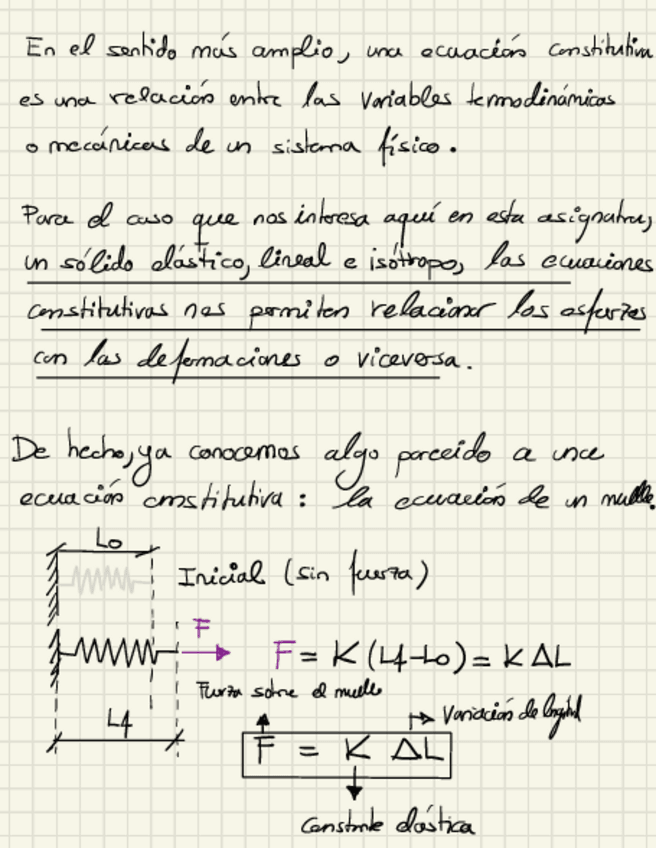 En el sentido más amplio, una ecuación constitutiva
es una relación entre las variables termodinámicas
o mecánicas de un sistema físico.
Para el caso que nos interesa aquí en esta asignatura,
un sólido elástico, lineal e isótropo, las ecuaciones
constitutivas nos permiten relacionar los esfuerzos
con las deformaciones o viceversa.
De hecho, ya conocemos algo parecido a una
ecuación constitutiva: la ecuación de un muelle.
L0
Inicial (sin fuerza)
F
F = K (Lf-L0) = K ΔL
Fuerza sobre el muelle
Lf
Variación de longitud
F = K ΔL
Constante elástica